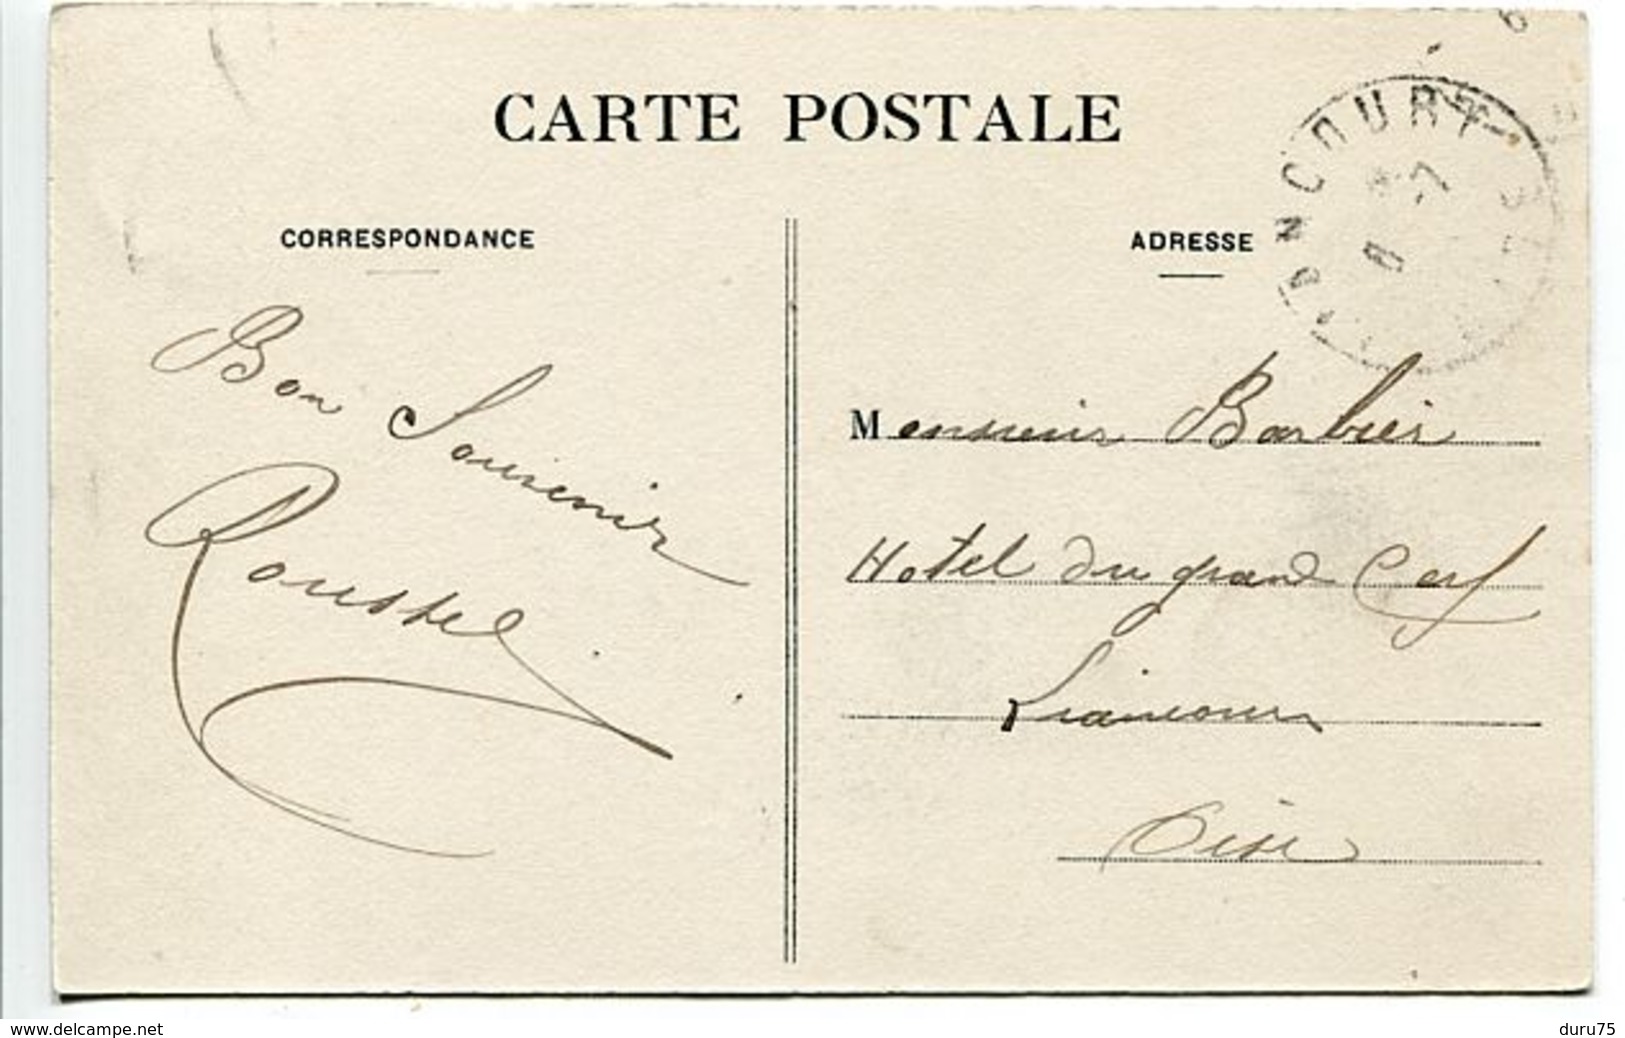 CARTE POSTALE
CORRESPONDANCE
ADRESSE
Bon Souvenir
Roussel
Monsieur Barbier
Hotel du grand Cerf
Liancourt
Oise
www.delcampe.net
duru75